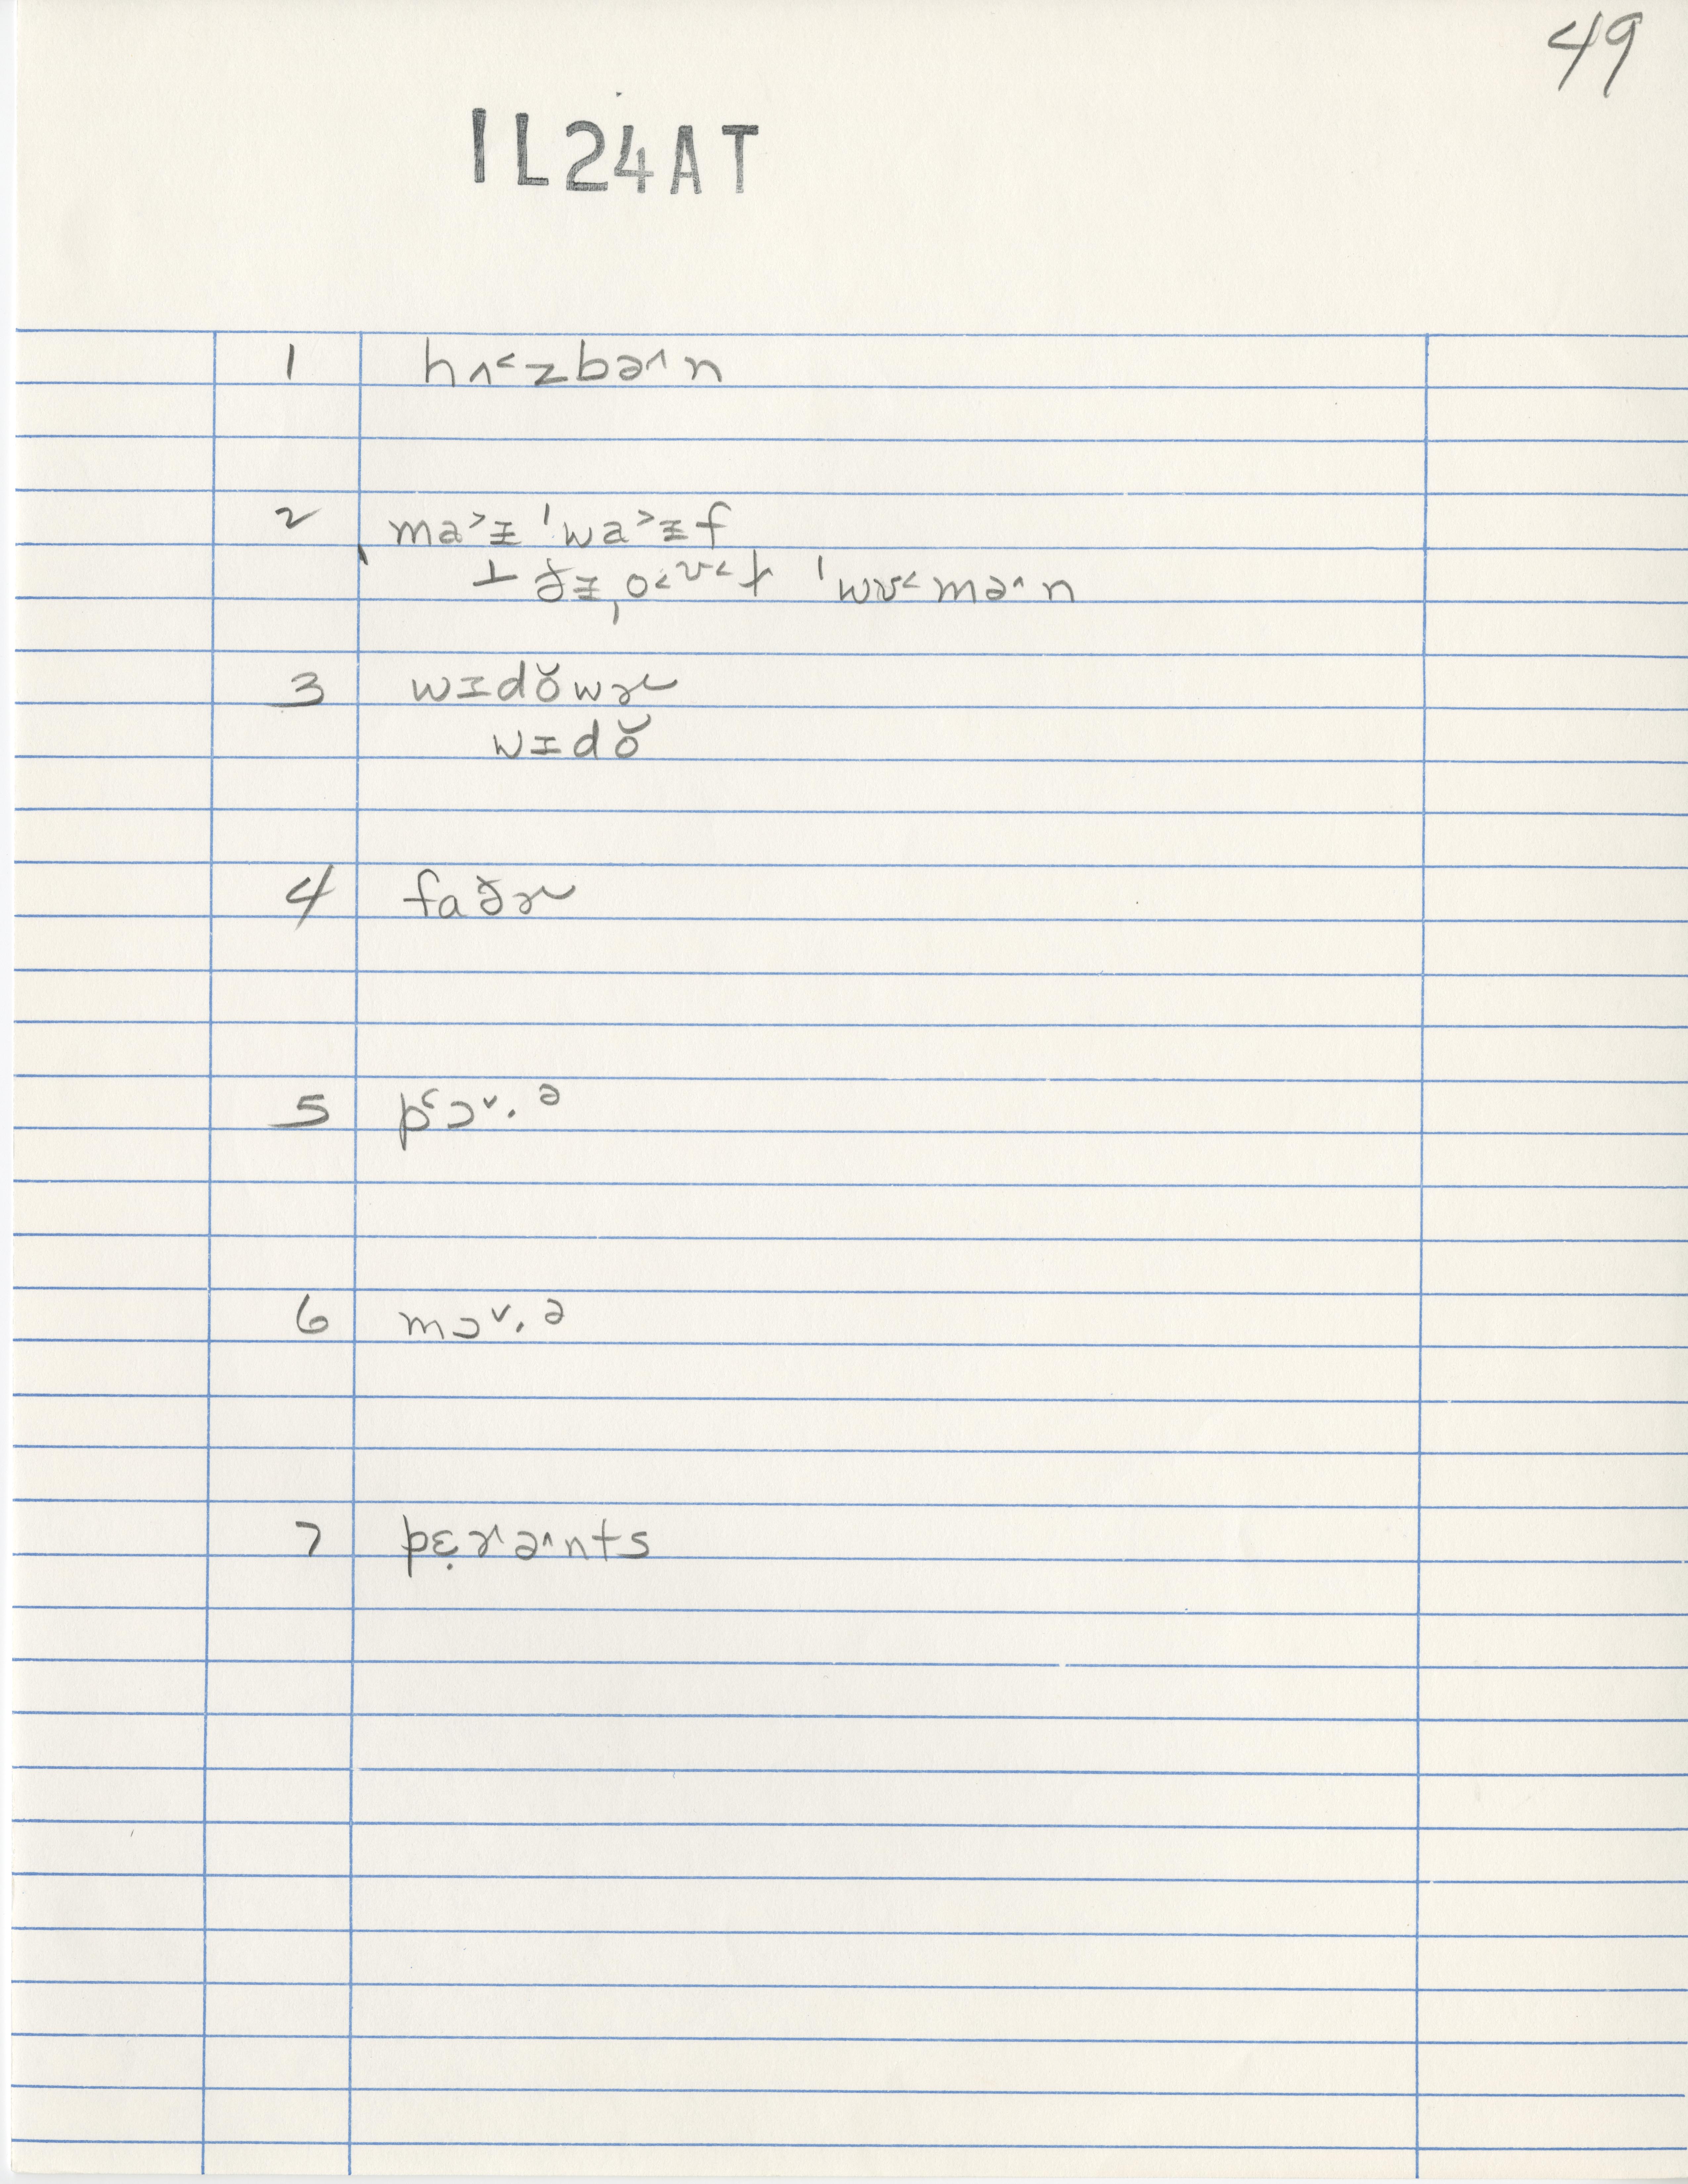 49
IL24AT
1 hʌ˂zbə˄n
2 ma˃ɪ ˈwa˃ɪf
⊥ ðɪ ˌo˂ʊ˂ɫ ˈwʊ˂mə˄n
3 wɪdŏwɚ
wɪdŏ
4 faðɚ
5 pʿɔ˅·ᵊ
6 mɔ˅·ᵊ
7 pɛ̣rə˄nts